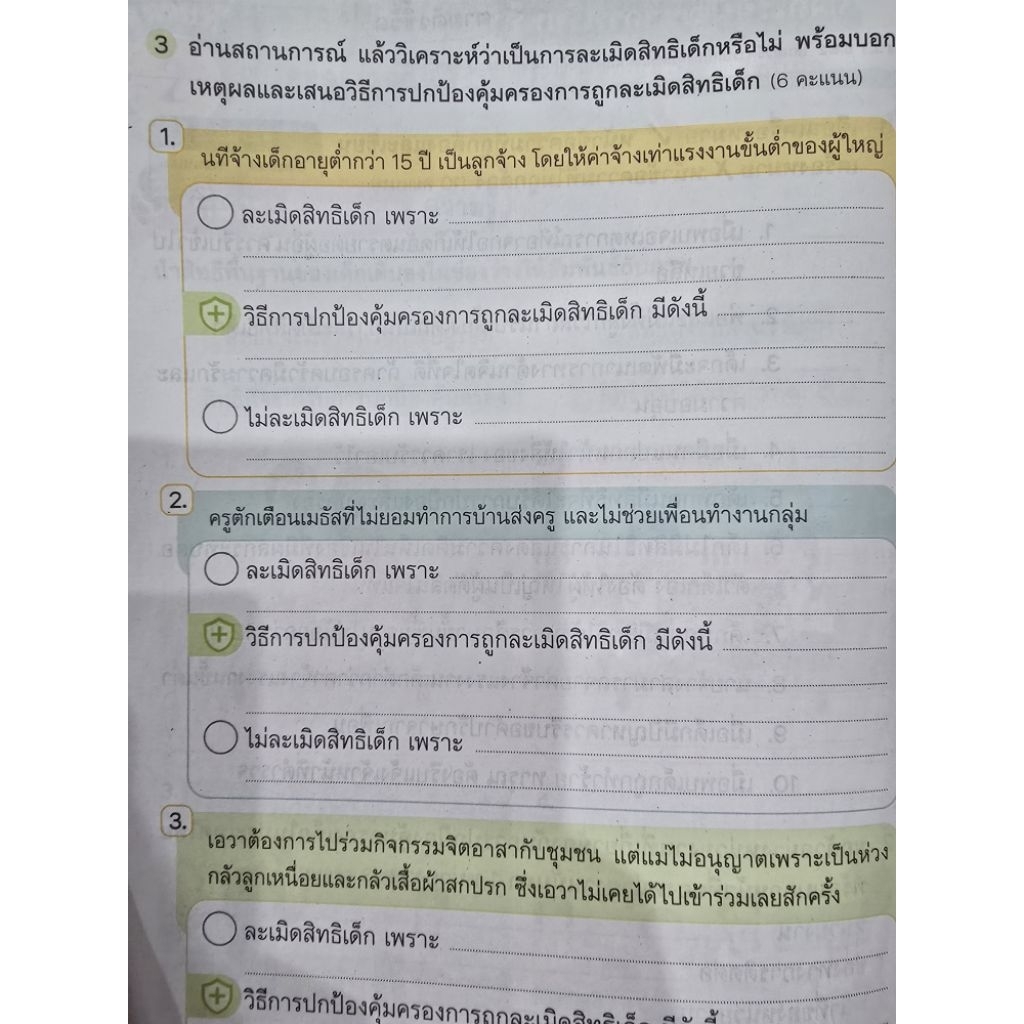 3 อ่านสถานการณ์ แล้ววิเคราะห์ว่าเป็นการละเมิดสิทธิเด็กหรือไม่ พร้อมบอก
เหตุผลและเสนอวิธีการปกป้องคุ้มครองการถูกละเมิดสิทธิเด็ก (6 คะแนน)
1.
นทีจ้างเด็กอายุต่ำกว่า 15 ปี เป็นลูกจ้าง โดยให้ค่าจ้างเท่าแรงงานขั้นต่ำของผู้ใหญ่
ละเมิดสิทธิเด็ก เพราะ
วิธีการปกป้องคุ้มครองการถูกละเมิดสิทธิเด็ก มีดังนี้
ไม่ละเมิดสิทธิเด็ก เพราะ
2.
ครูตักเตือนเมธัสที่ไม่ยอมทำการบ้านส่งครู และไม่ช่วยเพื่อนทำงานกลุ่ม
ละเมิดสิทธิเด็ก เพราะ
วิธีการปกป้องคุ้มครองการถูกละเมิดสิทธิเด็ก มีดังนี้
ไม่ละเมิดสิทธิเด็ก เพราะ
3.
เอวาต้องการไปร่วมกิจกรรมจิตอาสากับชุมชน แต่แม่ไม่อนุญาตเพราะเป็นห่วง
กลัวลูกเหนื่อยและกลัวเสื้อผ้าสกปรก ซึ่งเอวาไม่เคยได้ไปเข้าร่วมเลยสักครั้ง
ละเมิดสิทธิเด็ก เพราะ
วิธีการปกป้องคุ้มครองการถูกละเมิดสิทธิเด็ก มีดังนี้